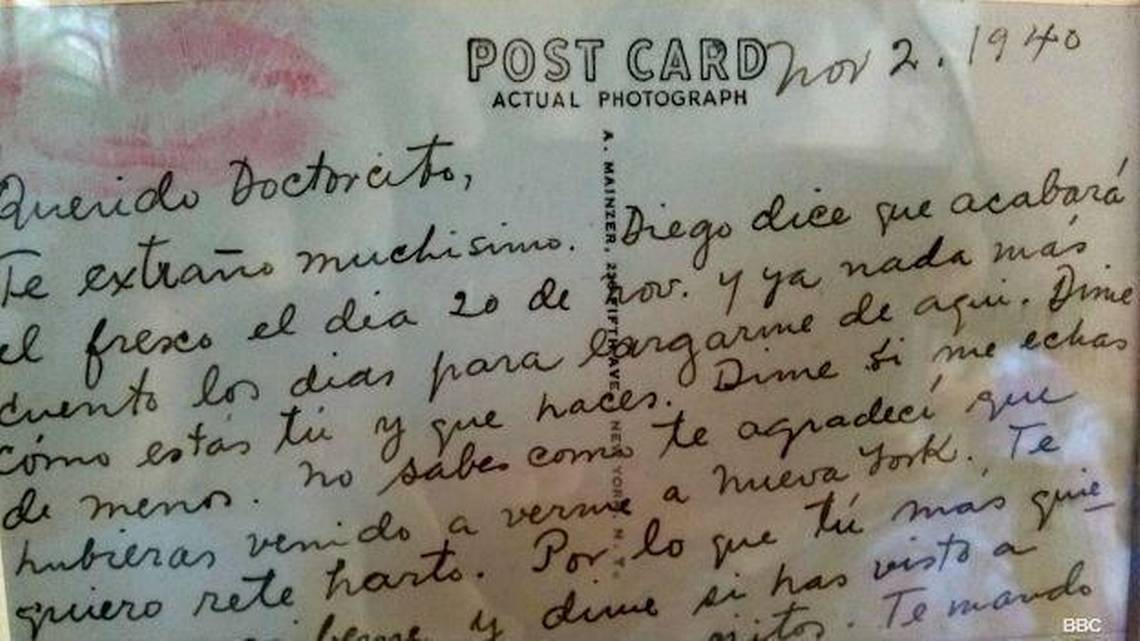 POST CARD
ACTUAL PHOTOGRAPH
Nov 2. 1940
A. MAINZER, FIFTH AVE NEW YORK N. Y.
Querido Doctorcito,
Te extraño muchisimo. Diego dice que acabará
el fresco el dia 20 de nov. y ya nada más
cuento los dias para largarme de aqui. Dime
cómo estás tú y que haces. Dime si me echas
de menos. No sabes como te agradecí que
hubieras venido a verme a Nueva York. Te
quiero rete harto. Por lo que tú más quie
y dime si has visto a
Te mando
BBC